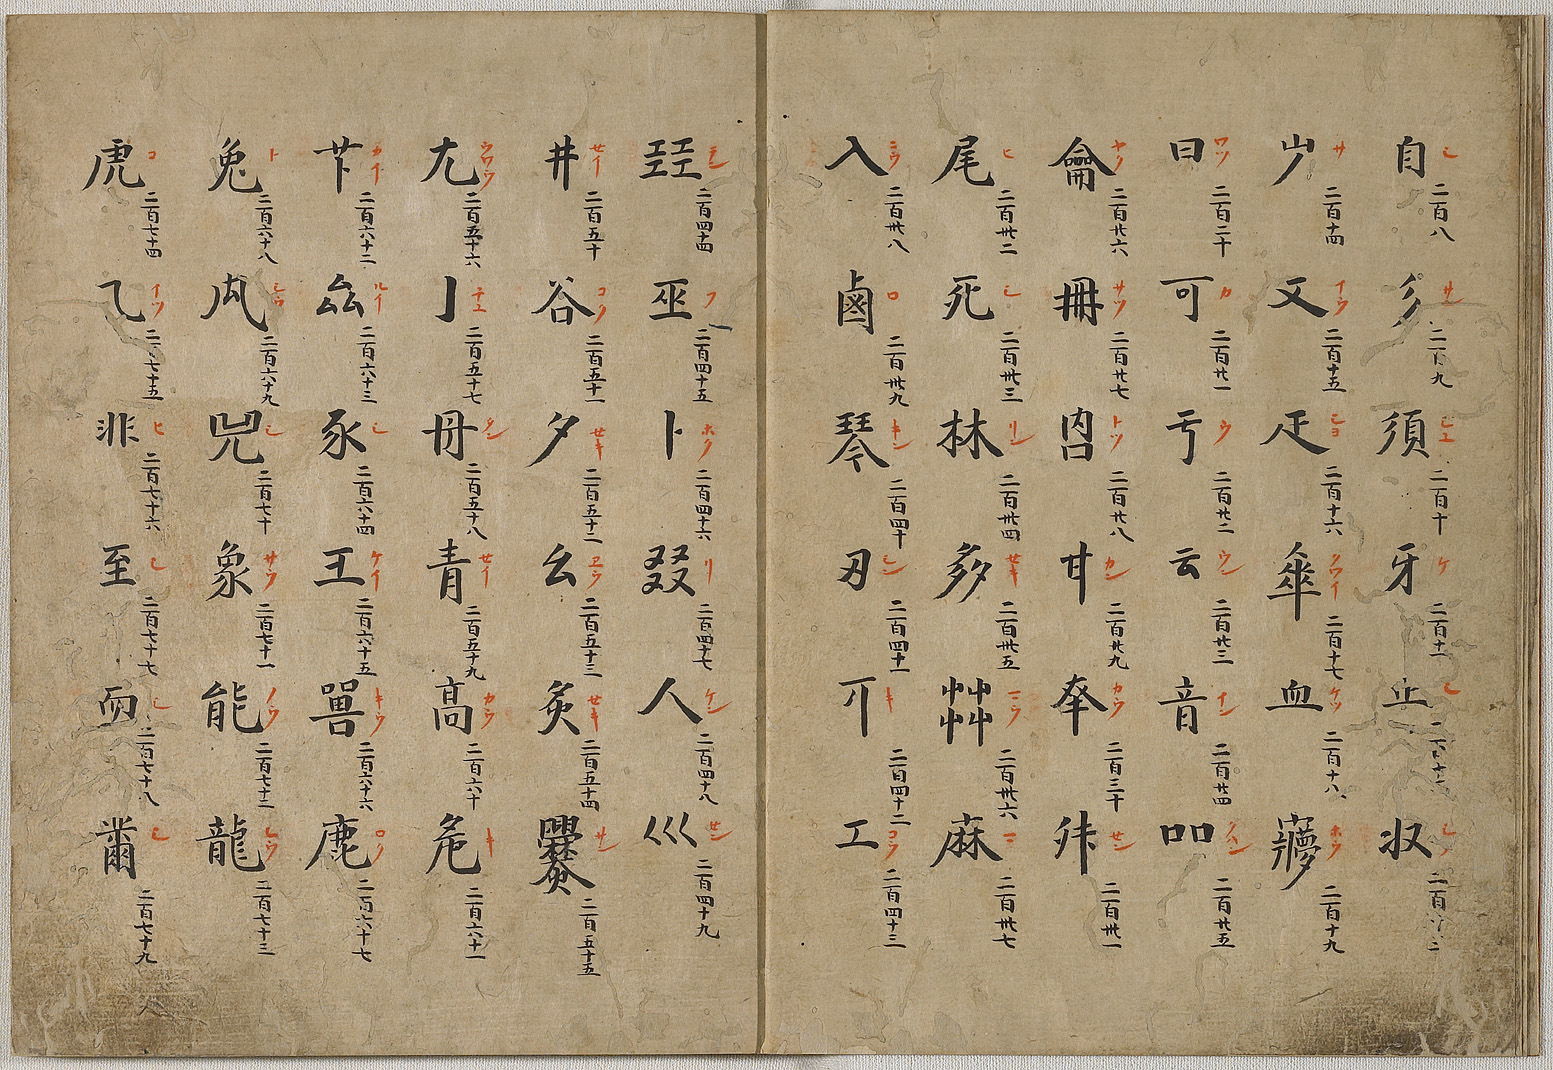 自 シ 二百八 彡 サン 二百九 須 二百十 牙 ケ 二百十一 止 シ 二百十二 収 二百十三
屵 サ 二百十四 文 二百十五 疋 シヨ 二百十六 傘 二百十七 血 ケツ 二百十八 㝱 ホウ 二百十九
曰 ワツ 二百二十 可 カ 二百廿一 亏 ウ 二百廿二 云 ウン 二百廿三 音 イン 二百廿四 吅 二百廿五
龠 ヤク 二百廿六 冊 サツ 二百廿七 㕯 トツ 二百廿八 甘 カン 二百廿九 夲 カウ 二百三十 舛 セン 二百卅一
尾 ヒ 二百卅二 死 シ 二百卅三 林 リン 二百卅四 多 二百卅五 茻 二百卅六 麻 マ 二百卅七
入 ニウ 二百卅八 鹵 ロ 二百卅九 琴 キン 二百四十 刃 シン 二百四十一 丌 キ 二百四十二 工 コウ 二百四十三
㠭 テン 二百四十四 巫 フ 二百四十五 卜 ホク 二百四十六 叕 リ 二百四十七 人 ケン 二百四十八 巛 セン 二百四十九
井 セイ 二百五十 谷 コク 二百五十一 夕 セキ 二百五十二 幺 ヱウ 二百五十三 炙 セキ 二百五十四 爨 サン 二百五十五
尢 ウワウ 二百五十六 亅 二百五十七 毌 二百五十八 青 セイ 二百五十九 高 カウ 二百六十 危 キ 二百六十一
𠁥 カイ 二百六十二 厽 ルイ 二百六十三 豕 シ 二百六十四 王 二百六十五 嘼 キウ 二百六十六 鹿 ロク 二百六十七
兔 ト 二百六十八 二百六十九 兕 シ 二百七十 象 サウ 二百七十一 能 ノウ 二百七十二 龍 二百七十三
虎 コ 二百七十四 乙 イツ 二百七十五 非 ヒ 二百七十六 至 シ 二百七十七 而 シ 二百七十八 黹 シ 二百七十九